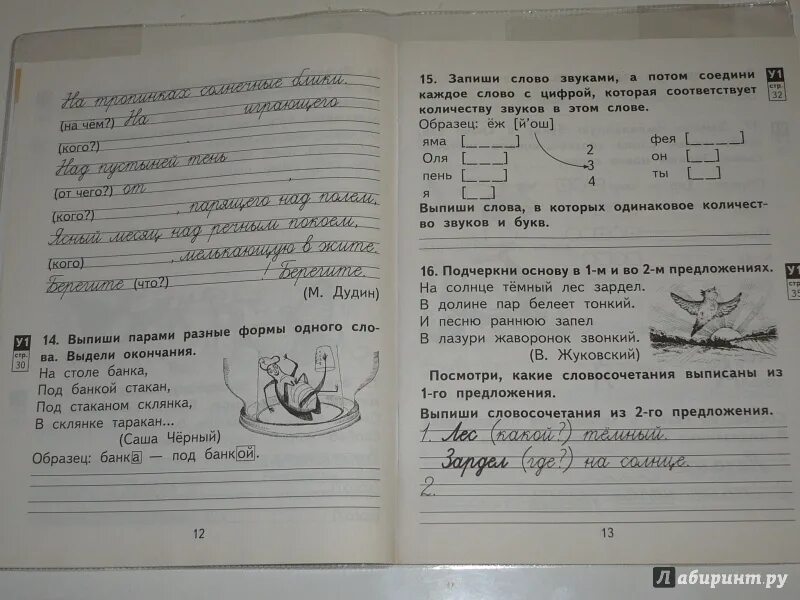 На тропинках солнечные блики.
(на чём?) На играющего
(кого?)
Над пустыней тень
(от чего?) от ,
(кого?) , парящего над полем,
Ясный месяц над речным покоем,
(кого) , мелькающую в жите.
Берегите (что?) ! Берегите.
(М. Дудин)
У1
стр.
30
14. Выпиши парами разные формы одного сло-
ва. Выдели окончания.
На столе банка,
Под банкой стакан,
Под стаканом склянка,
В склянке таракан...
(Саша Чёрный)
Образец: банка — под банкой.
12
15. Запиши слово звуками, а потом соедини
каждое слово с цифрой, которая соответствует
количеству звуков в этом слове.
У1
стр.
32
Образец: ёж [й'ош]
яма [_____]
Оля [____]
пень [____]
я [___]
2
3
4
фея [_____]
он [___]
ты [___]
Выпиши слова, в которых одинаковое количест-
во звуков и букв.
16. Подчеркни основу в 1-м и во 2-м предложениях.
У1
стр.
На солнце тёмный лес зардел.
В долине пар белеет тонкий.
И песню раннюю запел
В лазури жаворонок звонкий.
(В. Жуковский)
Посмотри, какие словосочетания выписаны из
1-го предложения.
Выпиши словосочетания из 2-го предложения.
1. Лес (какой?) тёмный.
Зардел (где?) на солнце.
2.
13
Лабиринт.ру